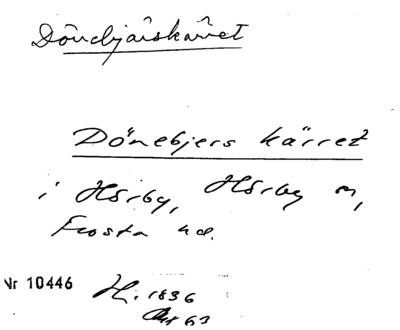 Dönebjärskärret
Dönebjers kärret
i Hörby, Hörby sn,
Frosta hd.
Nr 10446 H. 1836
Akt 63